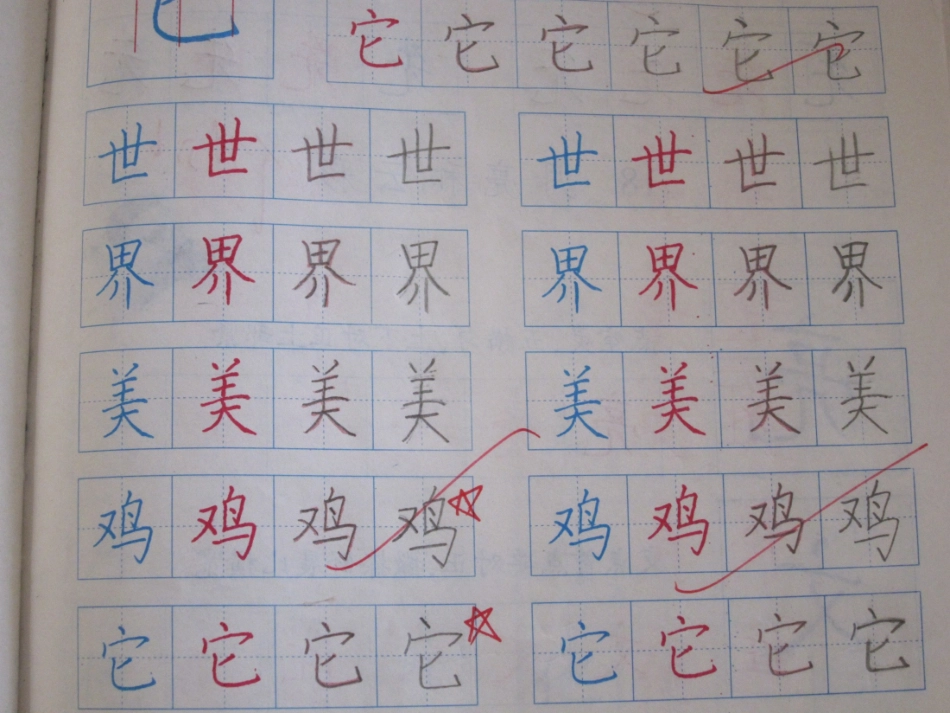 它 它 它 它 它 它
世 世 世 世 世 世 世 世
界 界 界 界 界 界 界 界
美 美 美 美 美 美 美 美
鸡 鸡 鸡 鸡 鸡 鸡 鸡 鸡
它 它 它 它 它 它 它 它